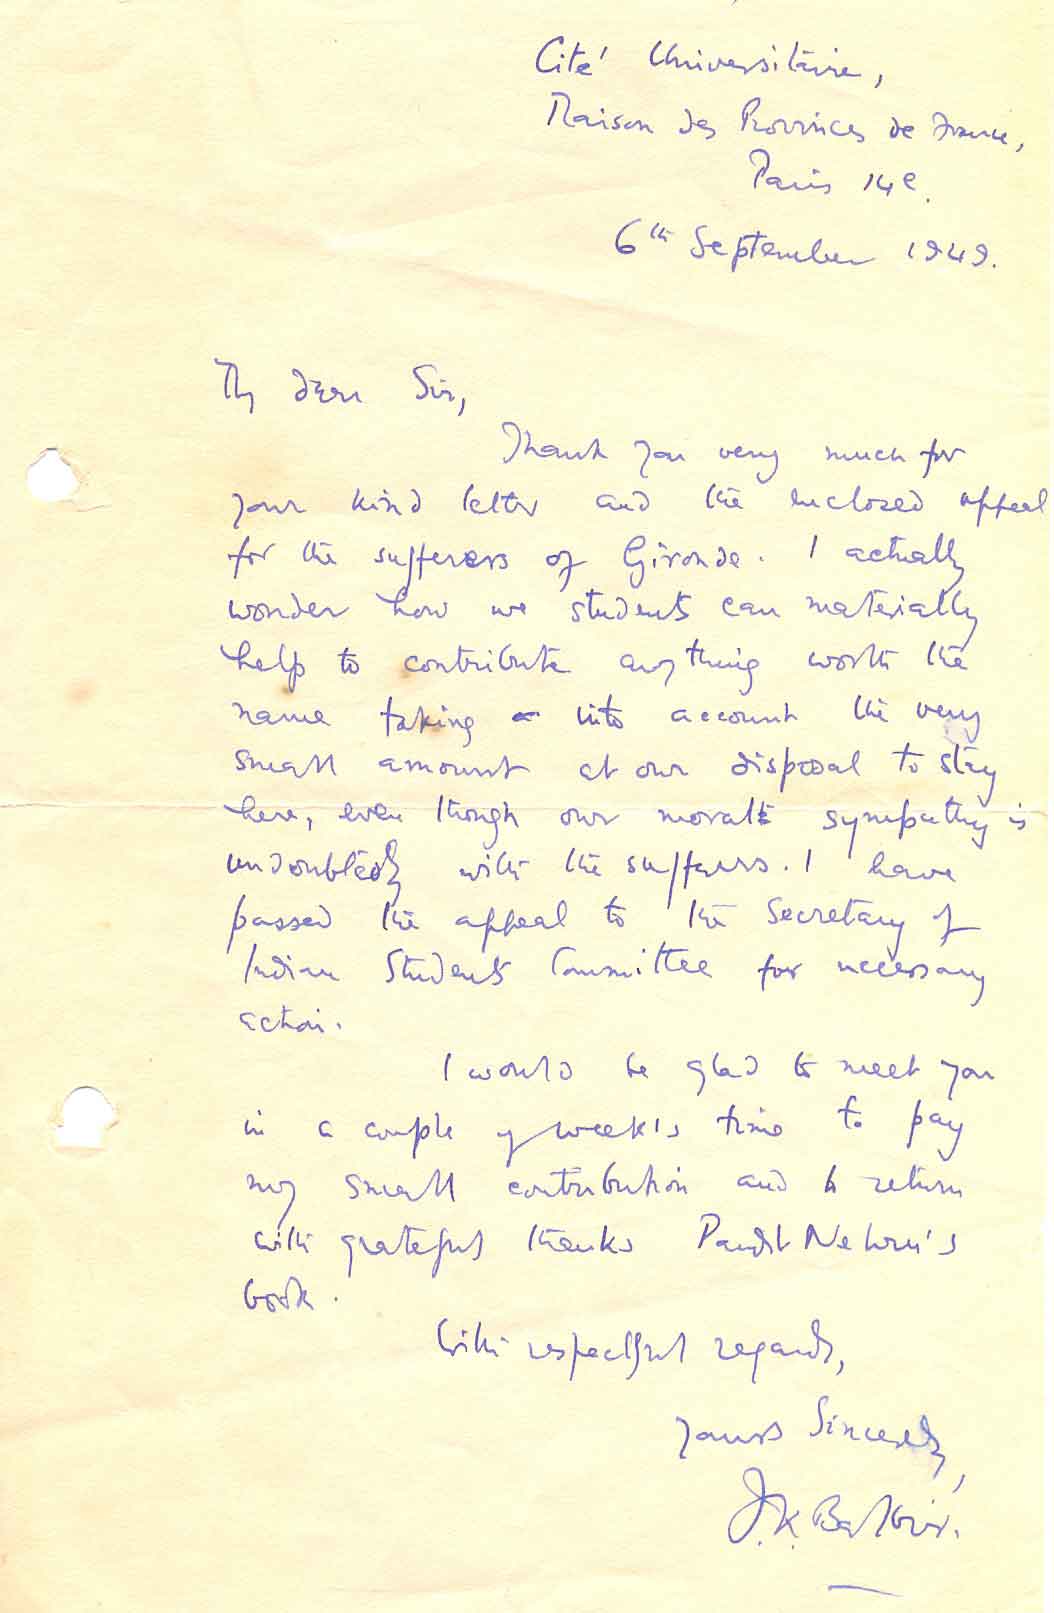 Cité Universitaire,
Maison des Provinces de France,
Paris 14e.
6th September 1949.
My dear Sir,
Thank you very much for
your kind letter and the enclosed appeal
for the sufferers of Gironde. I actually
wonder how we students can materially
help to contribute anything worth the
name taking into account the very
small amount at our disposal to stay
here, even though our moral sympathy is
undoubtedly with the suffers. I have
passed the appeal to the Secretary of
Indian Students Committee for necessary
action.
I would be glad to meet you
in a couple of week's time to pay
my small contribution and to return
with grateful thanks Pandit Nehru's
book.
With respectful regards,
Yours Sincerely,
J.K. Balbir.